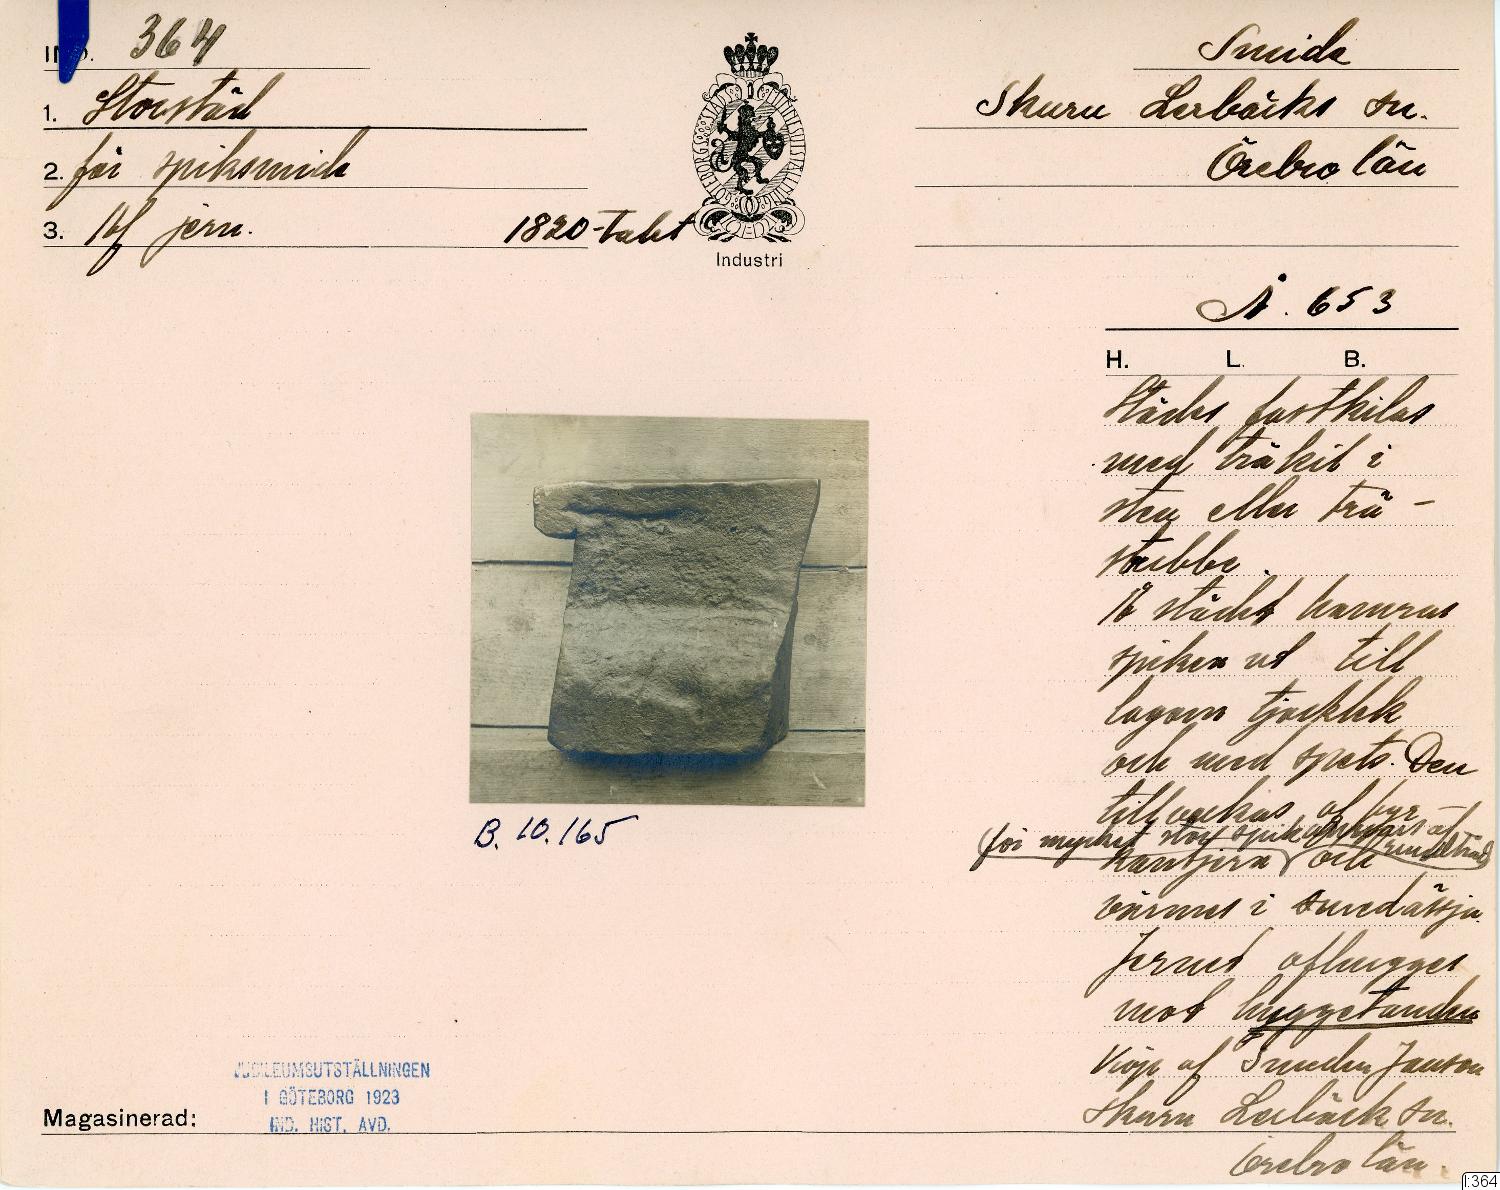 IND. 364
1. Storstäd
2. för spiksmide
3. Af jern. 1820-talet
GÖTEBORGS STADS JUBILEUMSUTSTÄLLNING
Industri
Smide
Skuru Lerbäcks sn.
Örebro län
N. 653
H. L. B.
Städet fastkilas
med träkil i
sten eller trä-
stubbe.
På städet hamras
spiken ut till
lagom tjocklek
och med spets. Den
tillverkas af fyr-
för mycket stor spik användes af rundträd
kantjern och
värmes i smedässja.
Jernet afhugges
mot huggetanden
Köpt af Smeden Janson
Skuru Lerbäck sn.
Örebro län.
B. 10.165
JUBILEUMSUTSTÄLLNINGEN
I GÖTEBORG 1923
IND. HIST. AVD.
Magasinerad:
I:364